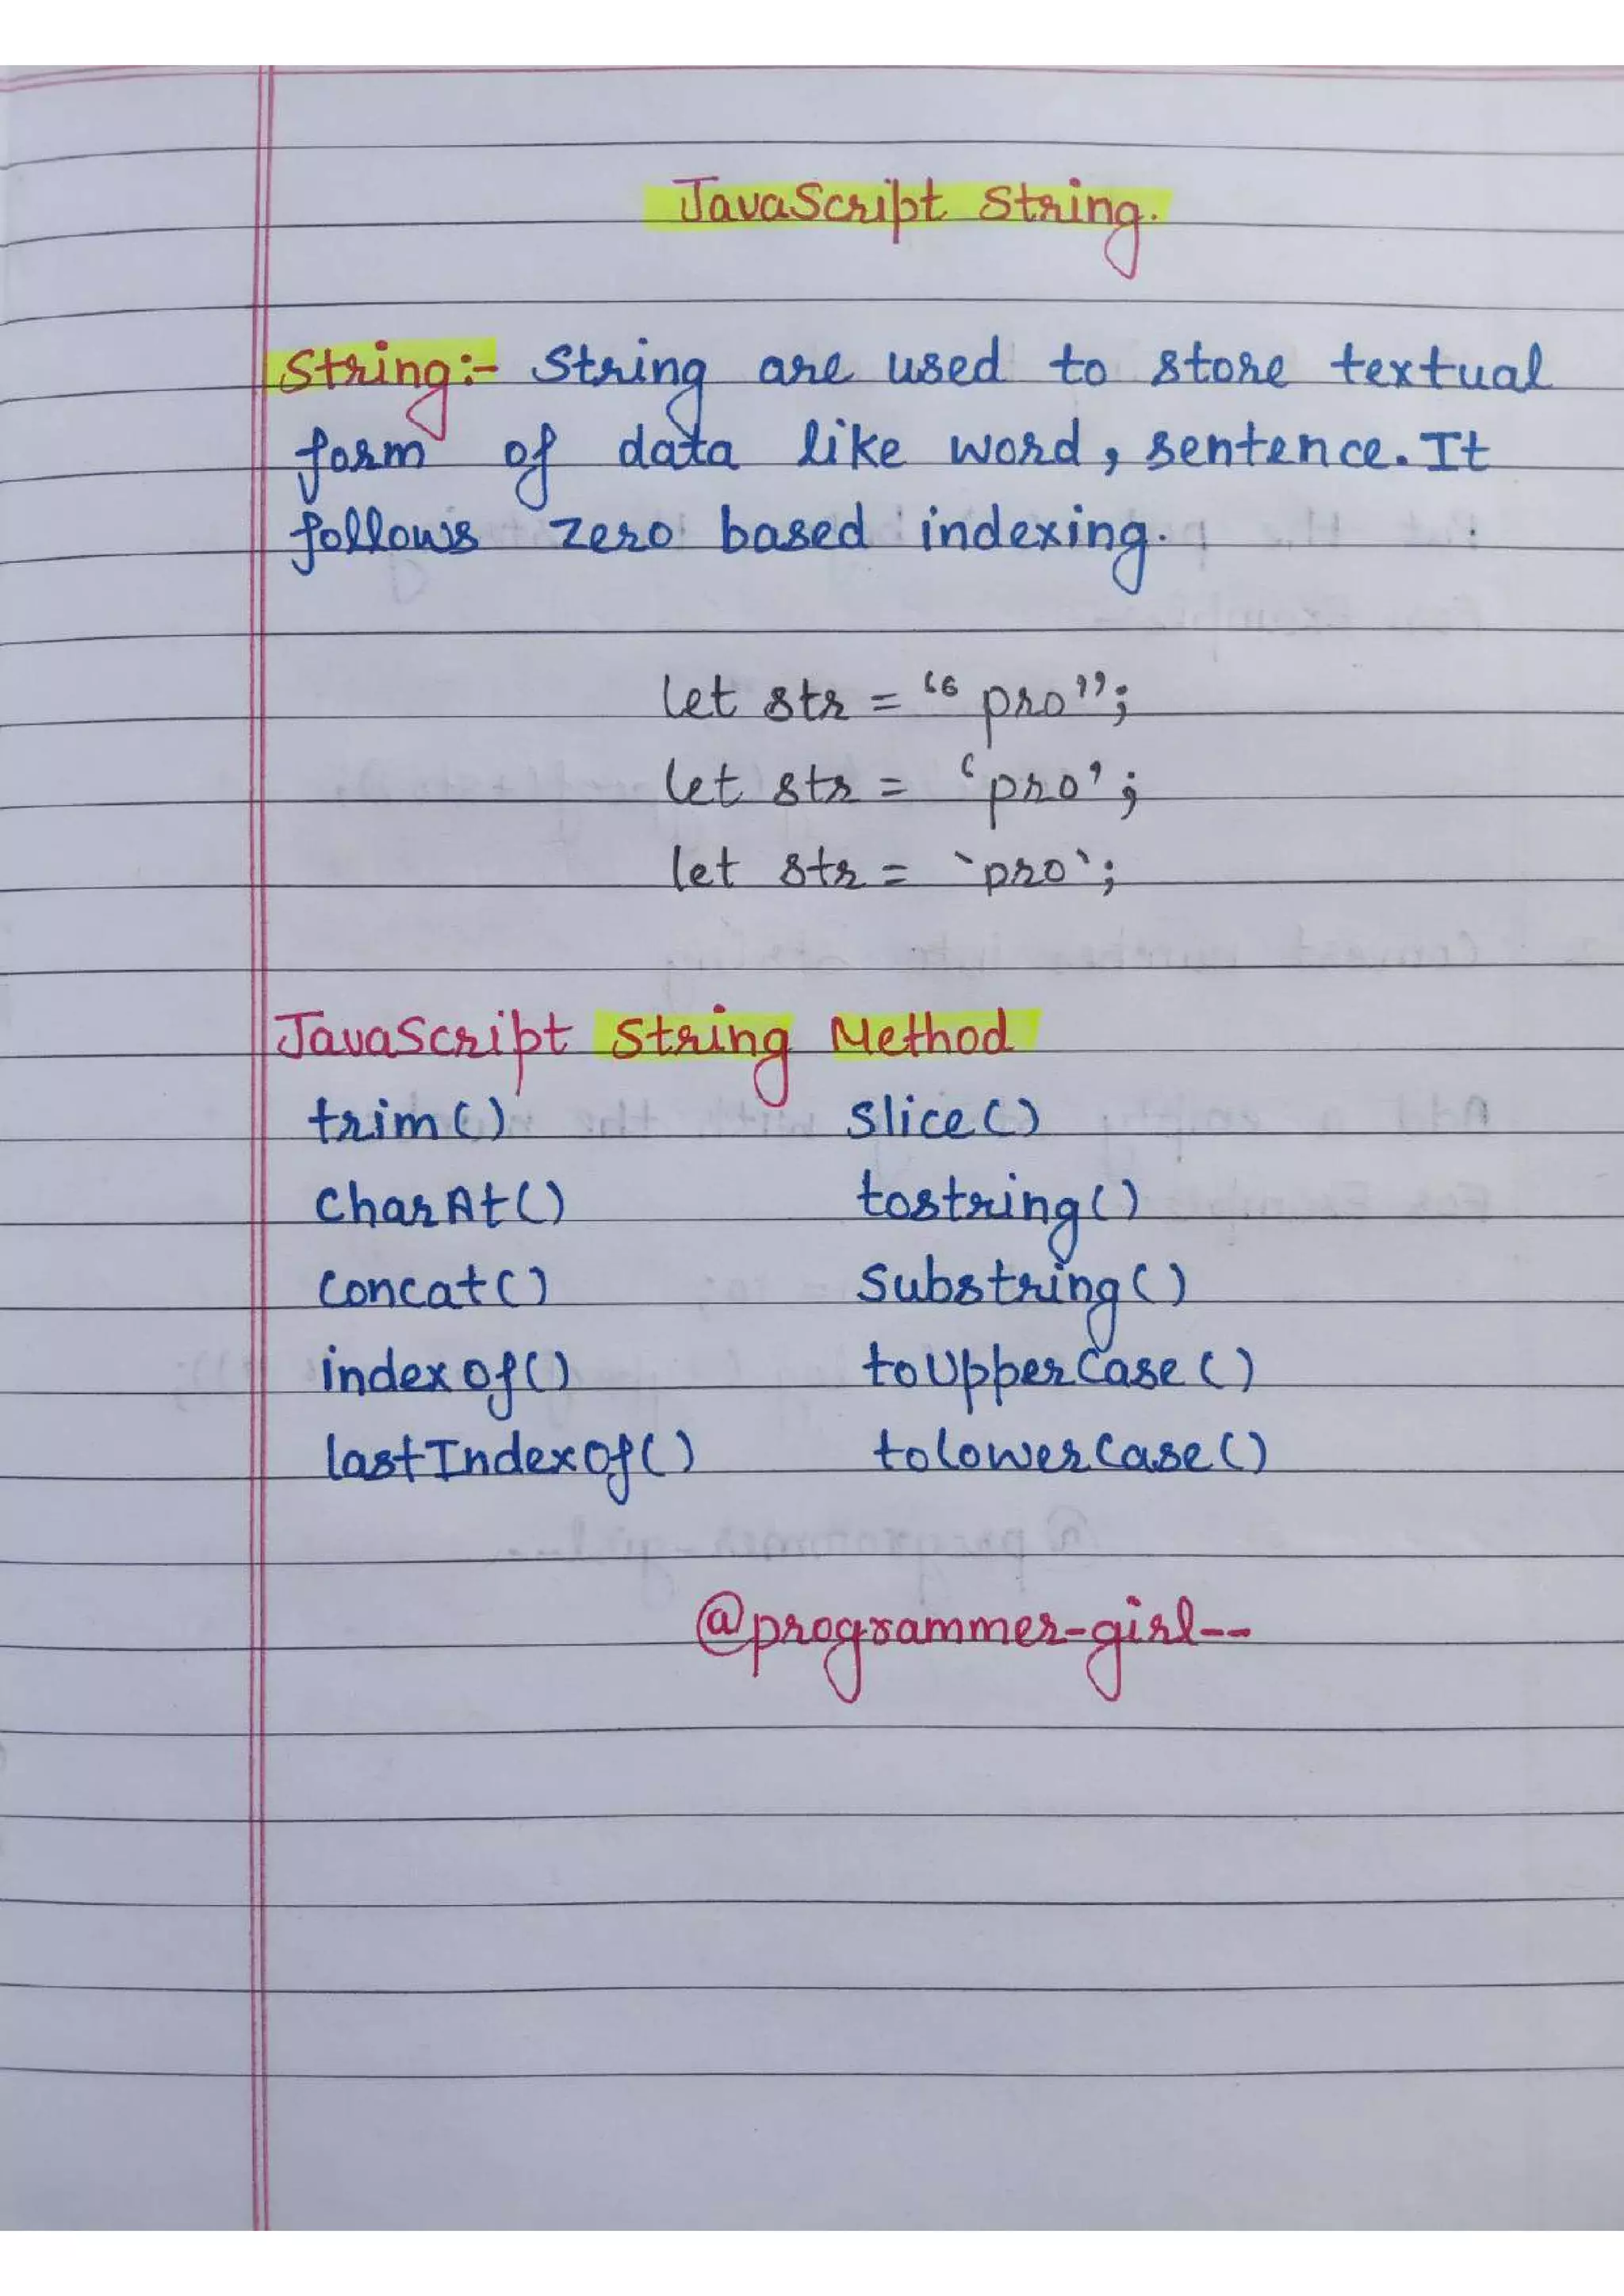 JavaScript String.
String:- String are used to store textual
form of data like word, sentence. It
follows zero based indexing.
let str = “pro”;
let str = ‘pro’;
let str = `pro`;
JavaScript String Method
trim() slice()
CharAt() tostring()
Concat() Substring()
indexOf() toUpperCase()
lastIndexOf() tolowerCase()
@programmer-girl--